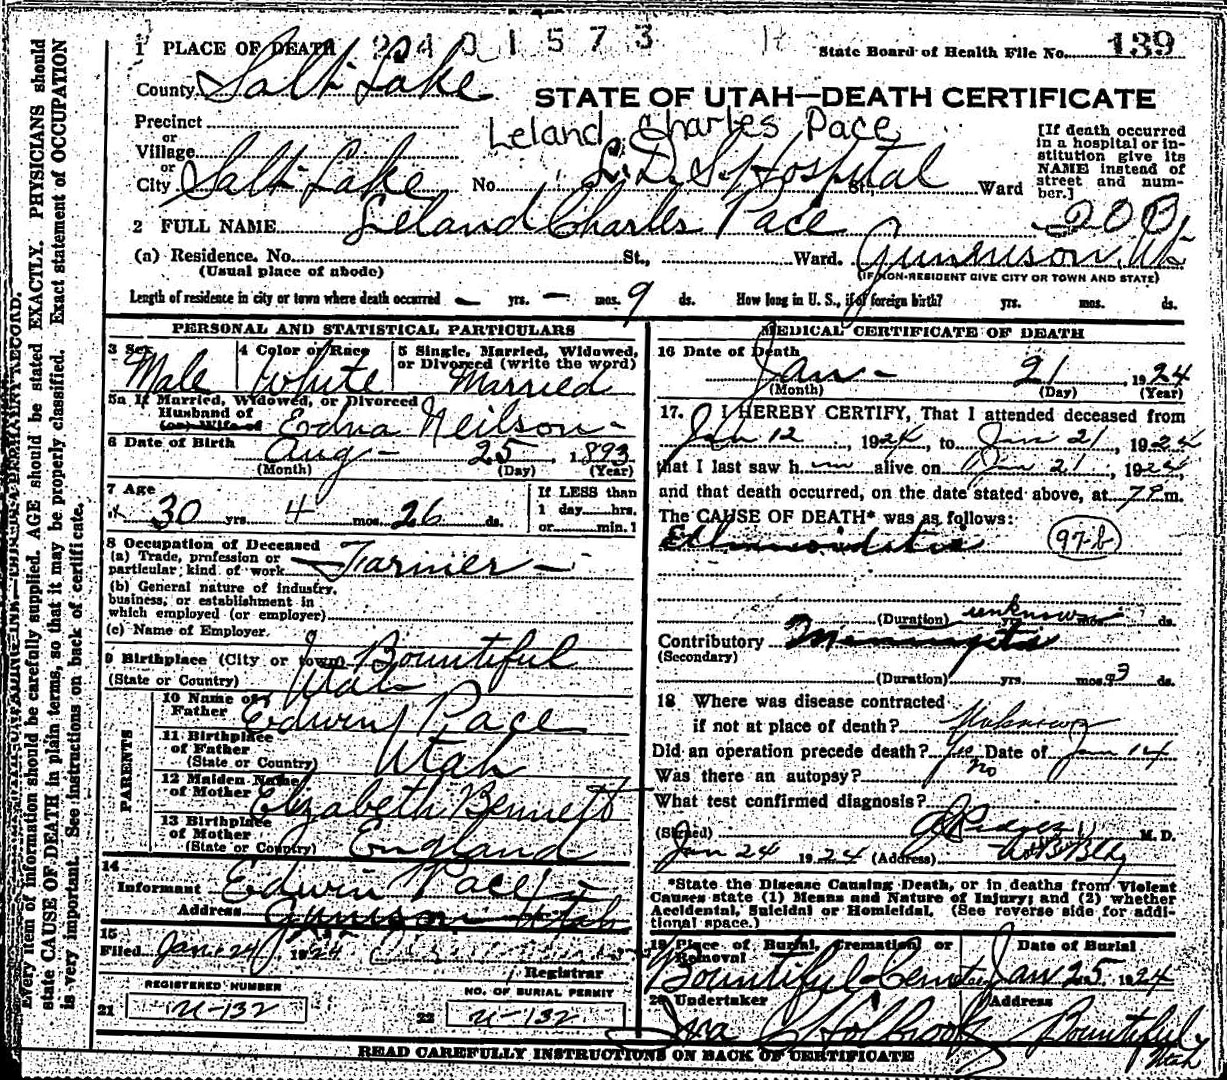 1 PLACE OF DEATH 2401573
State Board of Health File No. 139
County Salt Lake
STATE OF UTAH—DEATH CERTIFICATE
Precinct
or
Village
or
City Salt Lake No. L.D.S. Hospital St., Ward
Leland Charles Pace
[If death occurred in a hospital or institution give its NAME instead of street and number.]
2 FULL NAME Leland Charles Pace
(a) Residence. No. St., Ward. Gunnison, Ut
(Usual place of abode)
(IF NON-RESIDENT GIVE CITY OR TOWN AND STATE)
Length of residence in city or town where death occurred — yrs. — mos. 9 ds. How long in U. S., if of foreign birth? yrs. mos. ds.
PERSONAL AND STATISTICAL PARTICULARS
3 Sex Male
4 Color or Race White
5 Single, Married, Widowed, or Divorced (write the word) Married
5a If Married, Widowed, or Divorced
Husband of Edna Neilson
(or) Wife of
6 Date of Birth Aug - 25, 1893
(Month) (Day) (Year)
7 Age 30 yrs. 4 mos. 26 ds.
If LESS than 1 day hrs. or min.
8 Occupation of Deceased
(a) Trade, profession or particular kind of work Farmer
(b) General nature of industry, business, or establishment in which employed (or employer)
(c) Name of Employer
9 Birthplace (City or town) Bountiful
(State or Country) Utah
PARENTS
10 Name of Father Edwin Pace
11 Birthplace of Father (State or Country) Utah
12 Maiden Name of Mother Elizabeth Bennett
13 Birthplace of Mother (State or Country) England
14
Informant Edwin Pace
Address Gunnison Utah
15
Filed Jan. 24, 1924
Registrar
REGISTERED NUMBER
21 U-132
NO. OF BURIAL PERMIT
22 U-132
MEDICAL CERTIFICATE OF DEATH
16 Date of Death
Jan - 21, 1924
(Month) (Day) (Year)
17. I HEREBY CERTIFY, That I attended deceased from
Jan 12, 1924, to Jan 21, 1924
that I last saw h im alive on Jan 21, 1924,
and that death occurred, on the date stated above, at 7 P.m.
The CAUSE OF DEATH* was as follows:
97-8
(Duration) unknown yrs. mos. ds.
Contributory Meningitis
(Secondary)
(Duration) yrs. mos. 3 ds.
18 Where was disease contracted
if not at place of death? Unknown
Did an operation precede death? Yes Date of Jan 14
Was there an autopsy? No
What test confirmed diagnosis?
(Signed) M. D.
Jan 24 1924 (Address)
*State the Disease Causing Death, or in deaths from Violent Causes state (1) Means and Nature of Injury; and (2) whether Accidental, Suicidal or Homicidal. (See reverse side for additional space.)
19 Place of Burial, Cremation, or Removal Date of Burial
Bountiful Cemetery Jan 25, 1924
20 Undertaker Address
Holbrook Bountiful Utah
READ CAREFULLY INSTRUCTIONS ON BACK OF CERTIFICATE
Every item of information should be carefully supplied. AGE should be stated EXACTLY. PHYSICIANS should
state CAUSE OF DEATH in plain terms, so that it may be properly classified. Exact statement of OCCUPATION
is very important. See instructions on back of certificate.